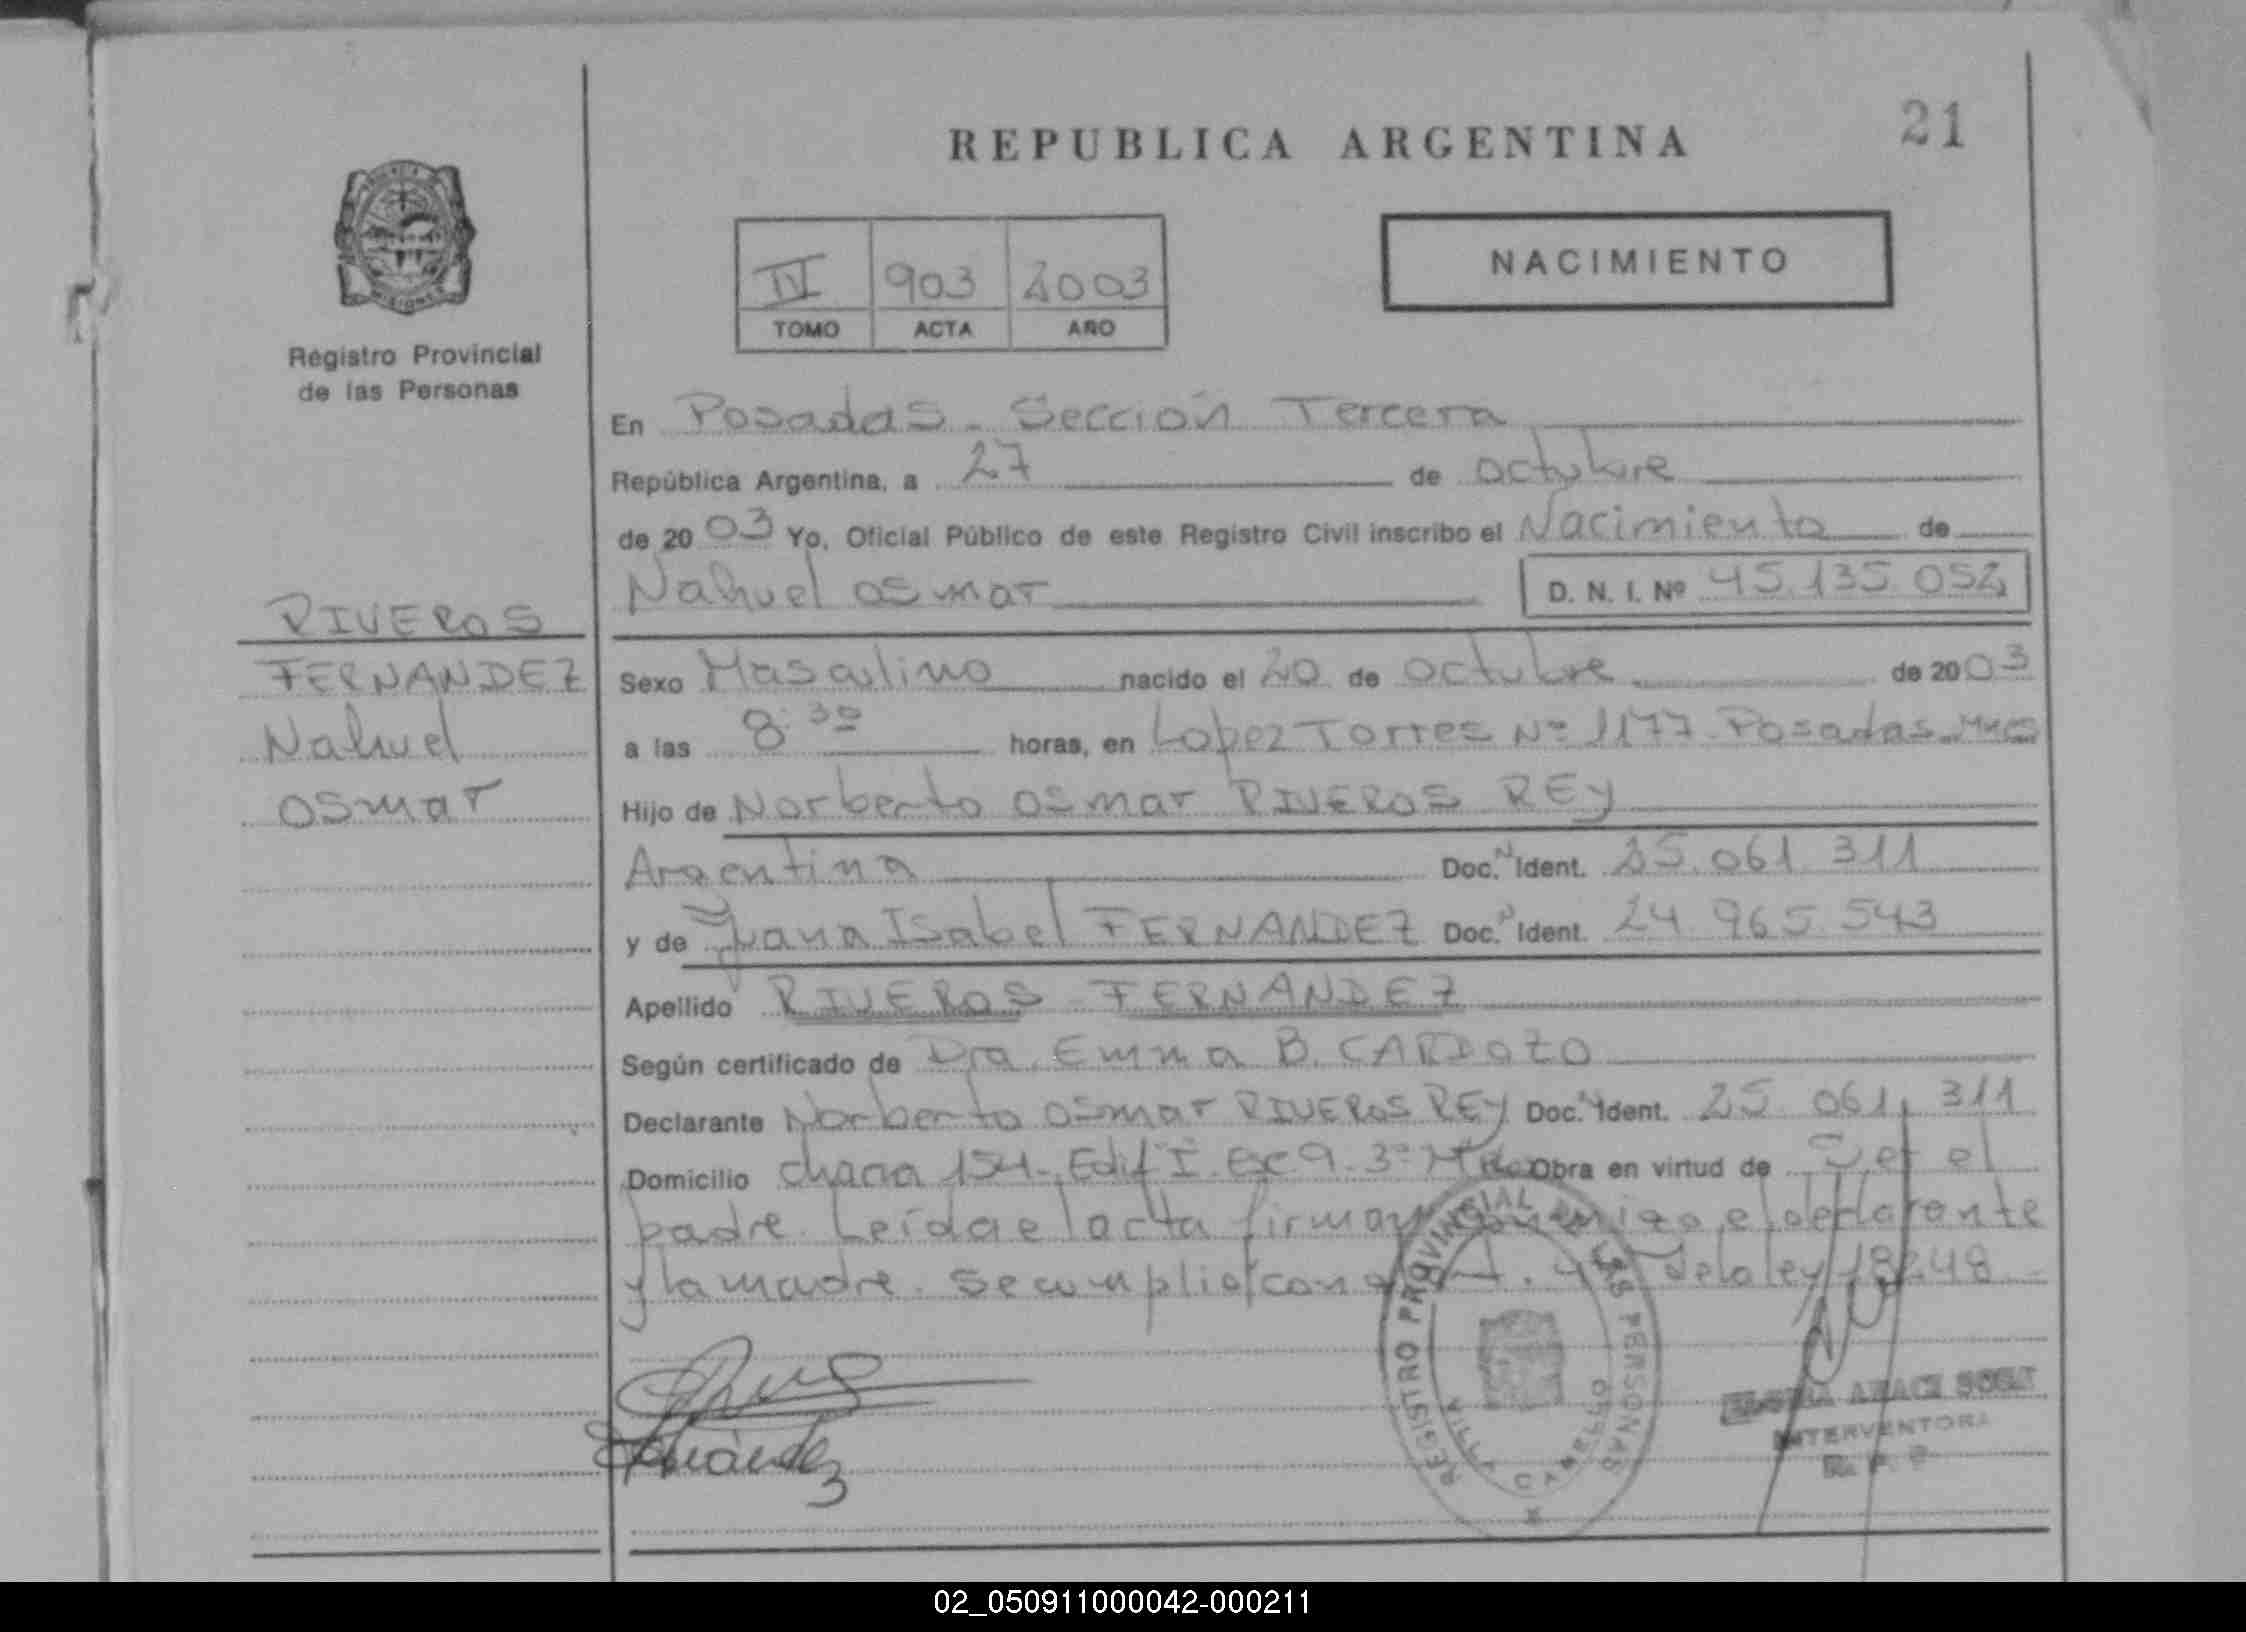 REPUBLICA ARGENTINA
21
NACIMIENTO
IV 903 2003
TOMO ACTA AÑO
MISIONES
Registro Provincial
de las Personas
RIVEROS
FERNANDEZ
Nahuel
Osmar
En Posadas - Sección Tercera
República Argentina, a 27 de octubre
de 2003 Yo, Oficial Público de este Registro Civil inscribo el Nacimiento de
Nahuel Osmar D. N. I. Nº 45.135.052
Sexo Masculino nacido el 20 de octubre de 2003
a las 8:30 horas, en Lopez Torres Nº 1177 - Posadas
Hijo de Norberto Osmar RIVEROS REY
Argentina Doc. N Ident. 25.061.311
y de Juana Isabel FERNANDEZ Doc. N Ident. 24.965.543
Apellido RIVEROS FERNANDEZ
Según certificado de Dra. Emma B. CARDOZO
Declarante Norberto Osmar RIVEROS REY Doc. N Ident. 25.061.311
Domicilio chacra 154 - Edif I. Esc 9. 3º Obra en virtud de Ser el
padre. Leída el acta firman conmigo el declarante
y la madre. Se cumplió con de la ley 18248
Fernández
REGISTRO PROVINCIAL DE LAS PERSONAS
VILLA CABELLO
INTERVENTORA
02_050911000042-000211